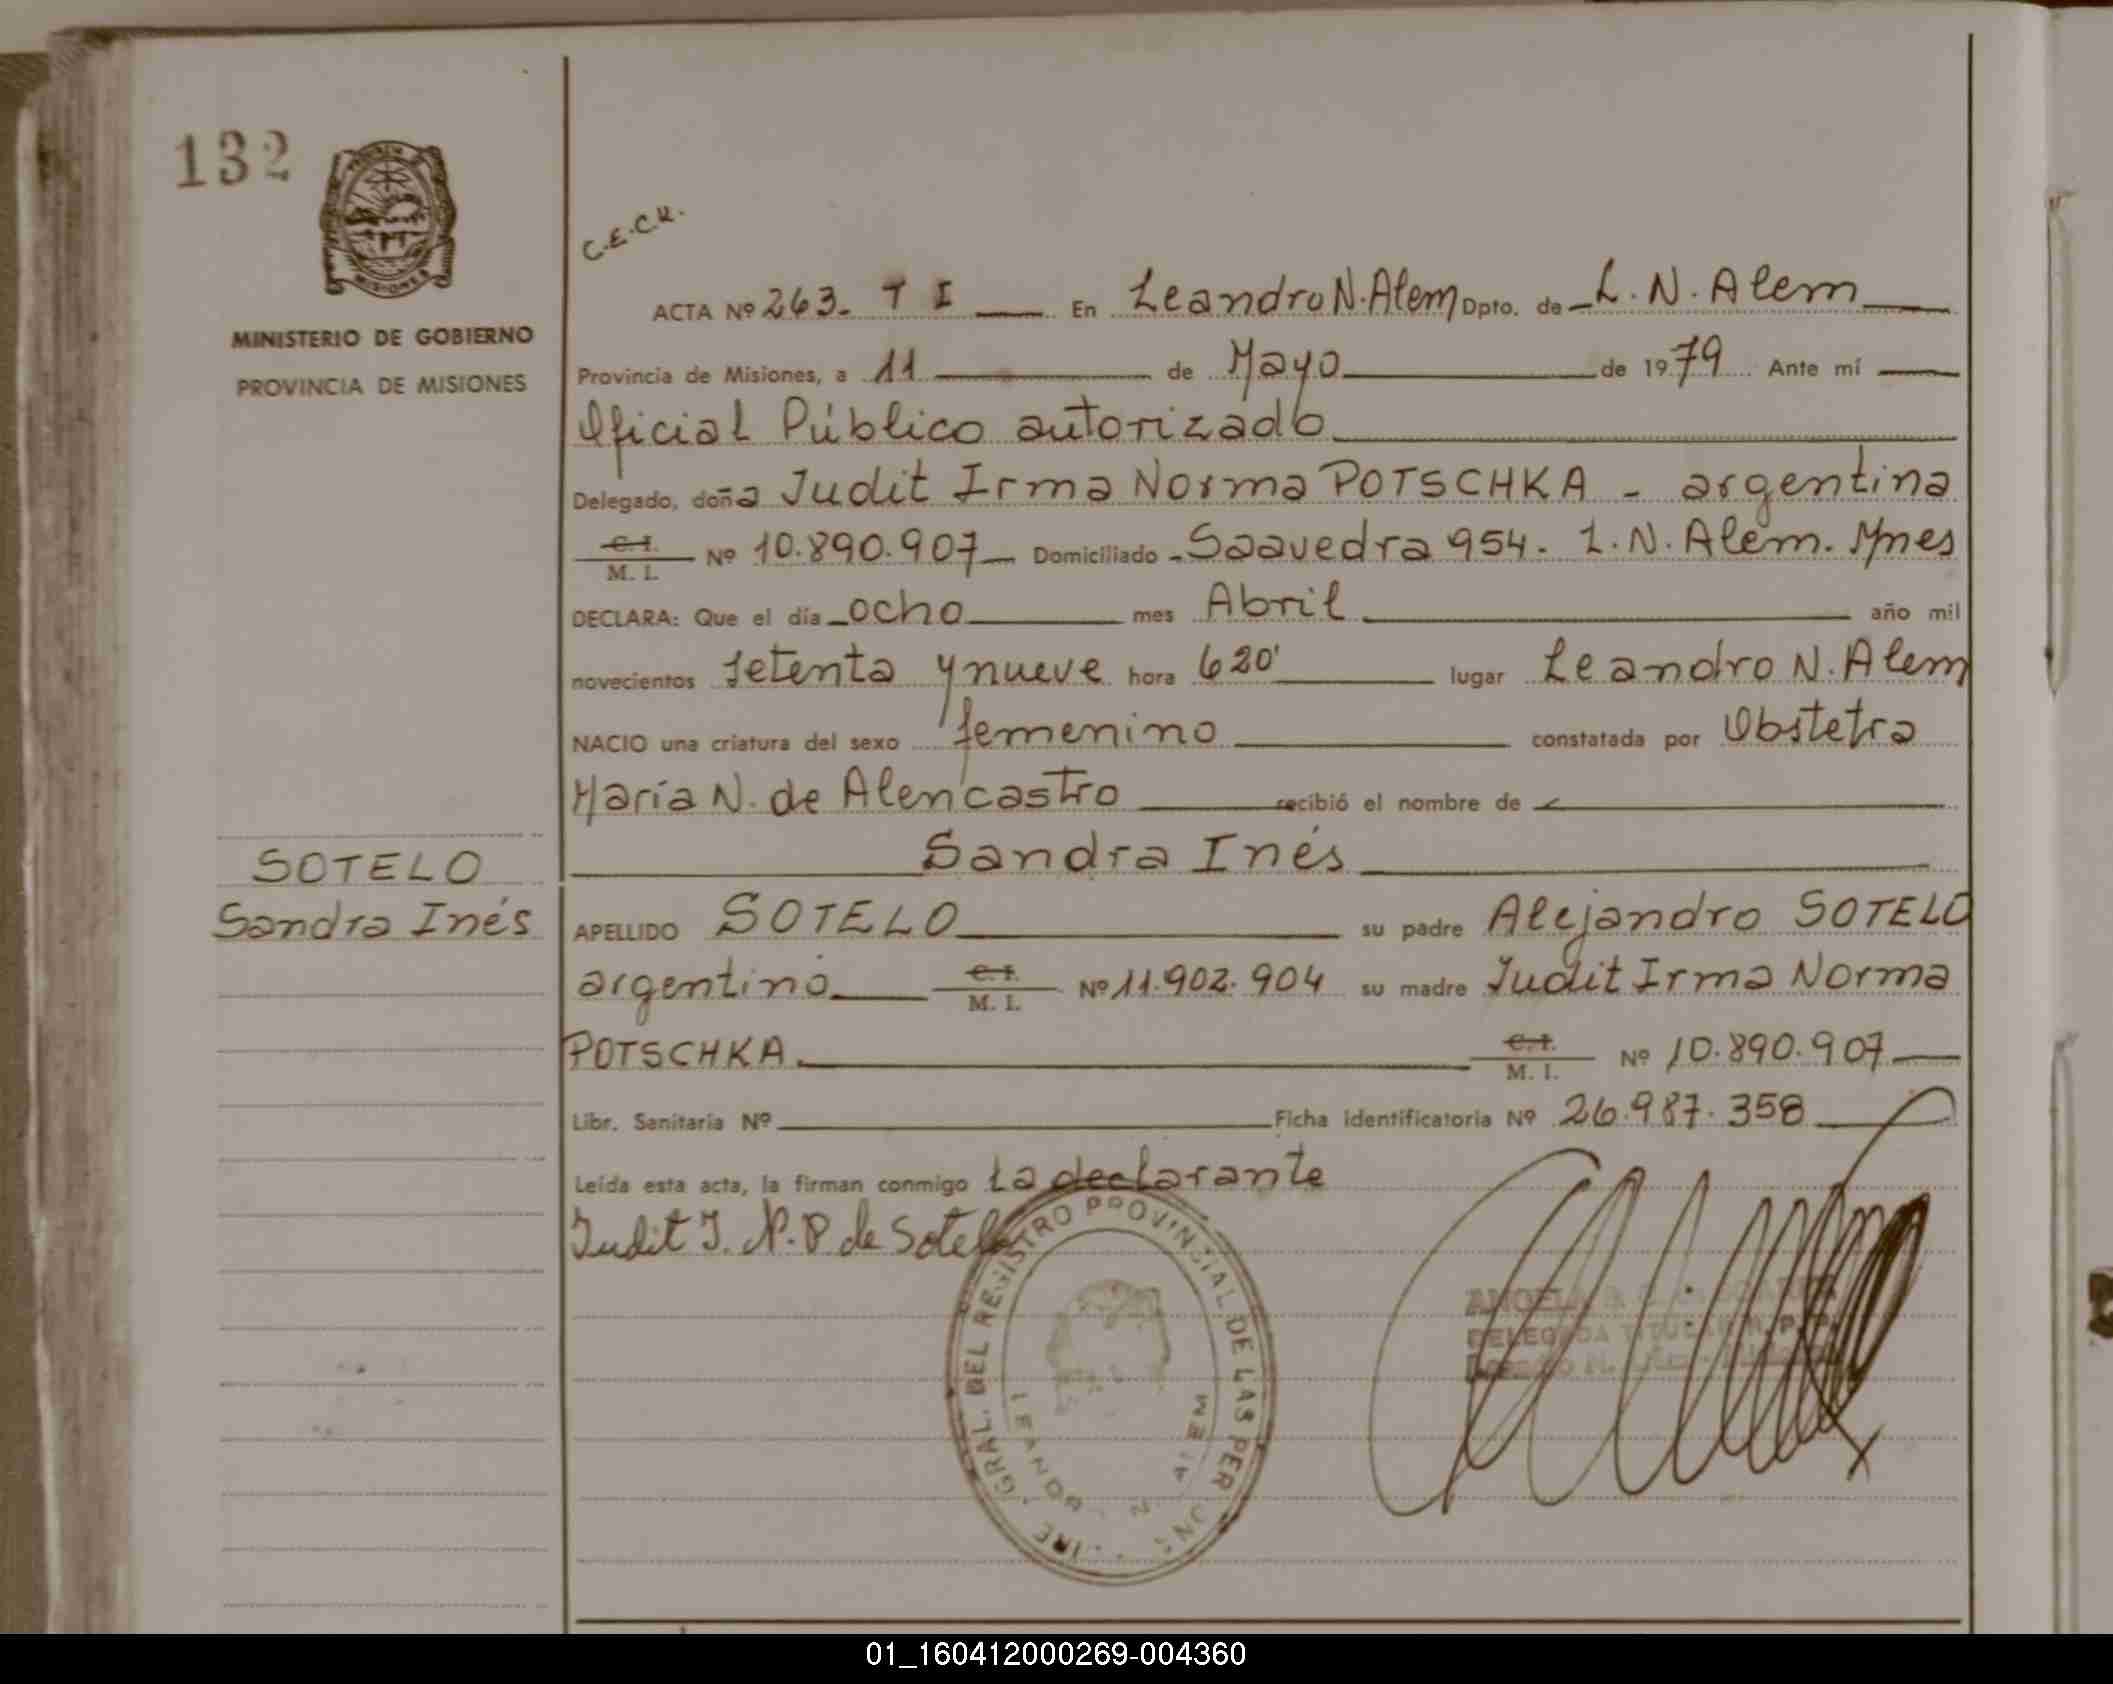 132
MINISTERIO DE GOBIERNO
PROVINCIA DE MISIONES
SOTELO
Sandra Inés
C.E.C.U.
ACTA Nº 263. T I En Leandro N. Alem Dpto. de L. N. Alem
Provincia de Misiones, a 11 de Mayo de 1979 Ante mí
Oficial Público autorizado
Delegado, doña Judit Irma Norma POTSCHKA - argentina
C. I. M. I. Nº 10.890.907 Domiciliado Saavedra 954. L. N. Alem. Mnes
DECLARA: Que el día ocho mes Abril año mil
novecientos setenta y nueve hora 6 20' lugar Leandro N. Alem
NACIO una criatura del sexo femenino constatada por Obstetra
María N. de Alencastro recibió el nombre de
Sandra Inés
APELLIDO SOTELO su padre Alejandro SOTELO
argentino C. I. M. I. Nº 11.902.904 su madre Judit Irma Norma
POTSCHKA. C. I. M. I. Nº 10.890.907
Libr. Sanitaria Nº Ficha identificatoria Nº 26.987.358
Leída esta acta, la firman conmigo la declarante
Judit I. N. P. de Sotelo
GRAL. DEL REGISTRO PROVINCIAL DE LAS PER
DELEGADA TITULAR
01_160412000269-004360